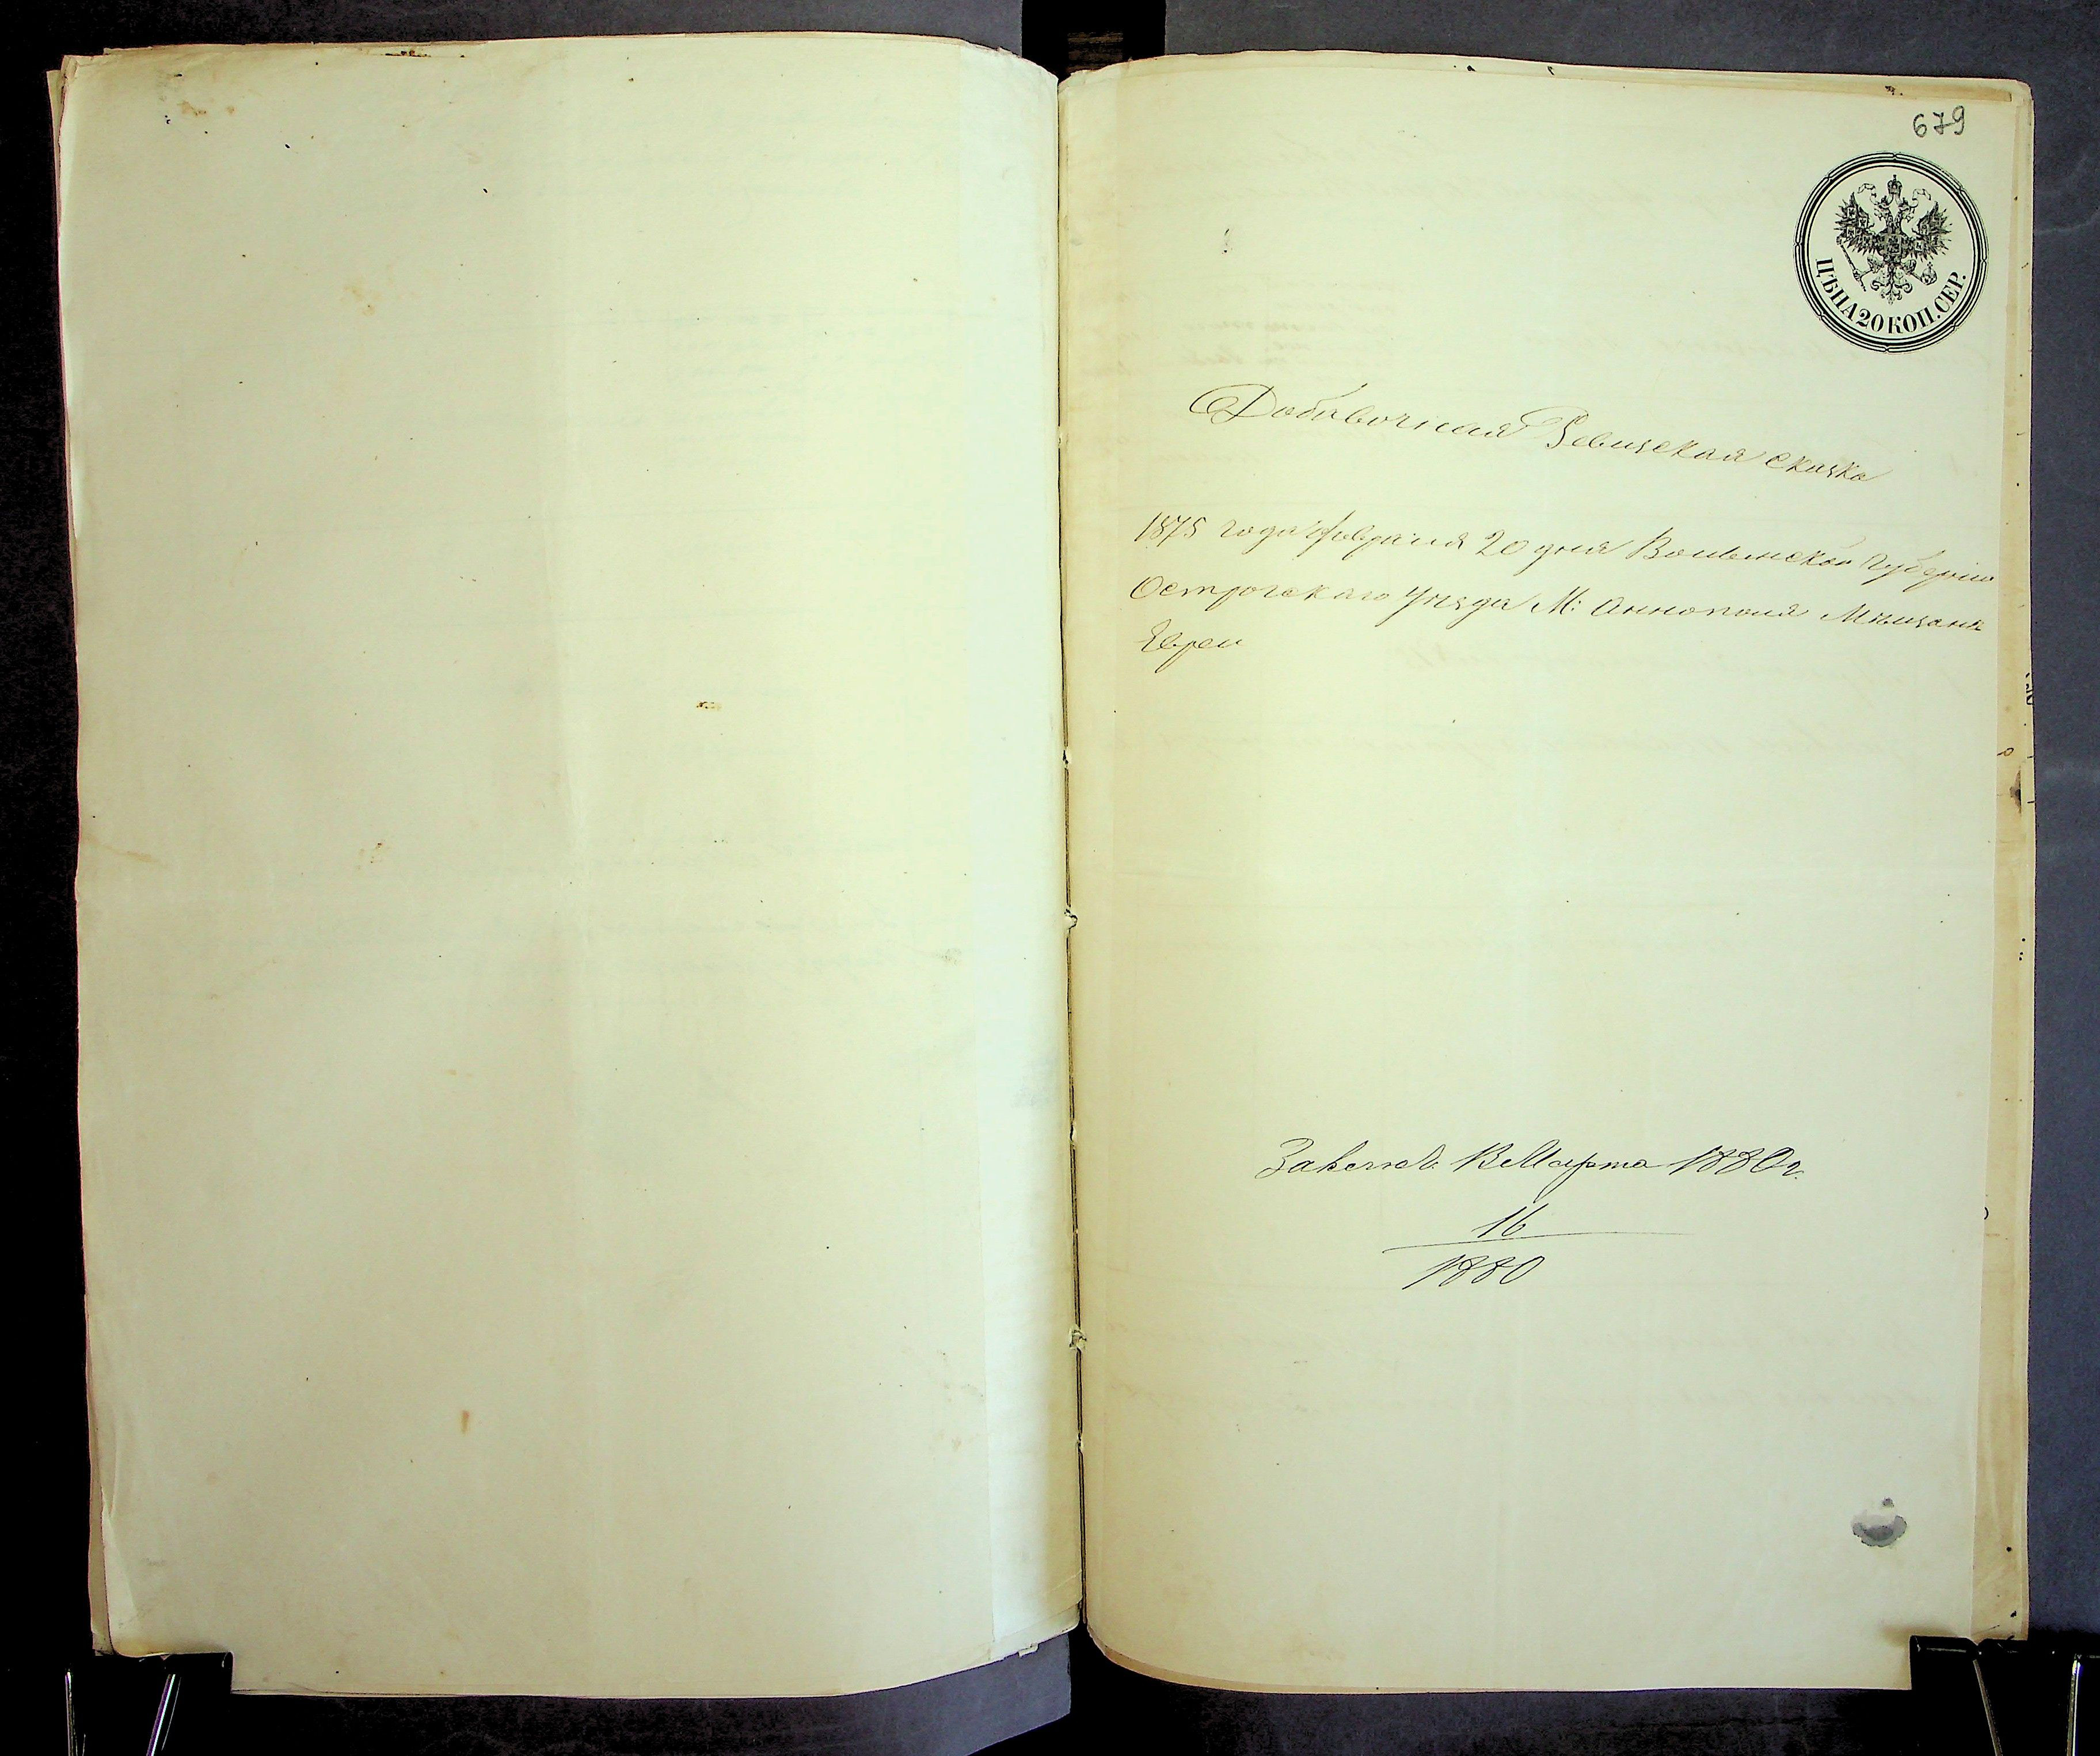 679
ЦѢНА 20 КОП. СЕР.
Добавочная Ревизская сказка
1875 года февраля 20 дня Волынской губерніи
Острогскаго уѣзда М: Аннополя Мѣщанъ
Евреи
Марта 1880 г.
16
1880